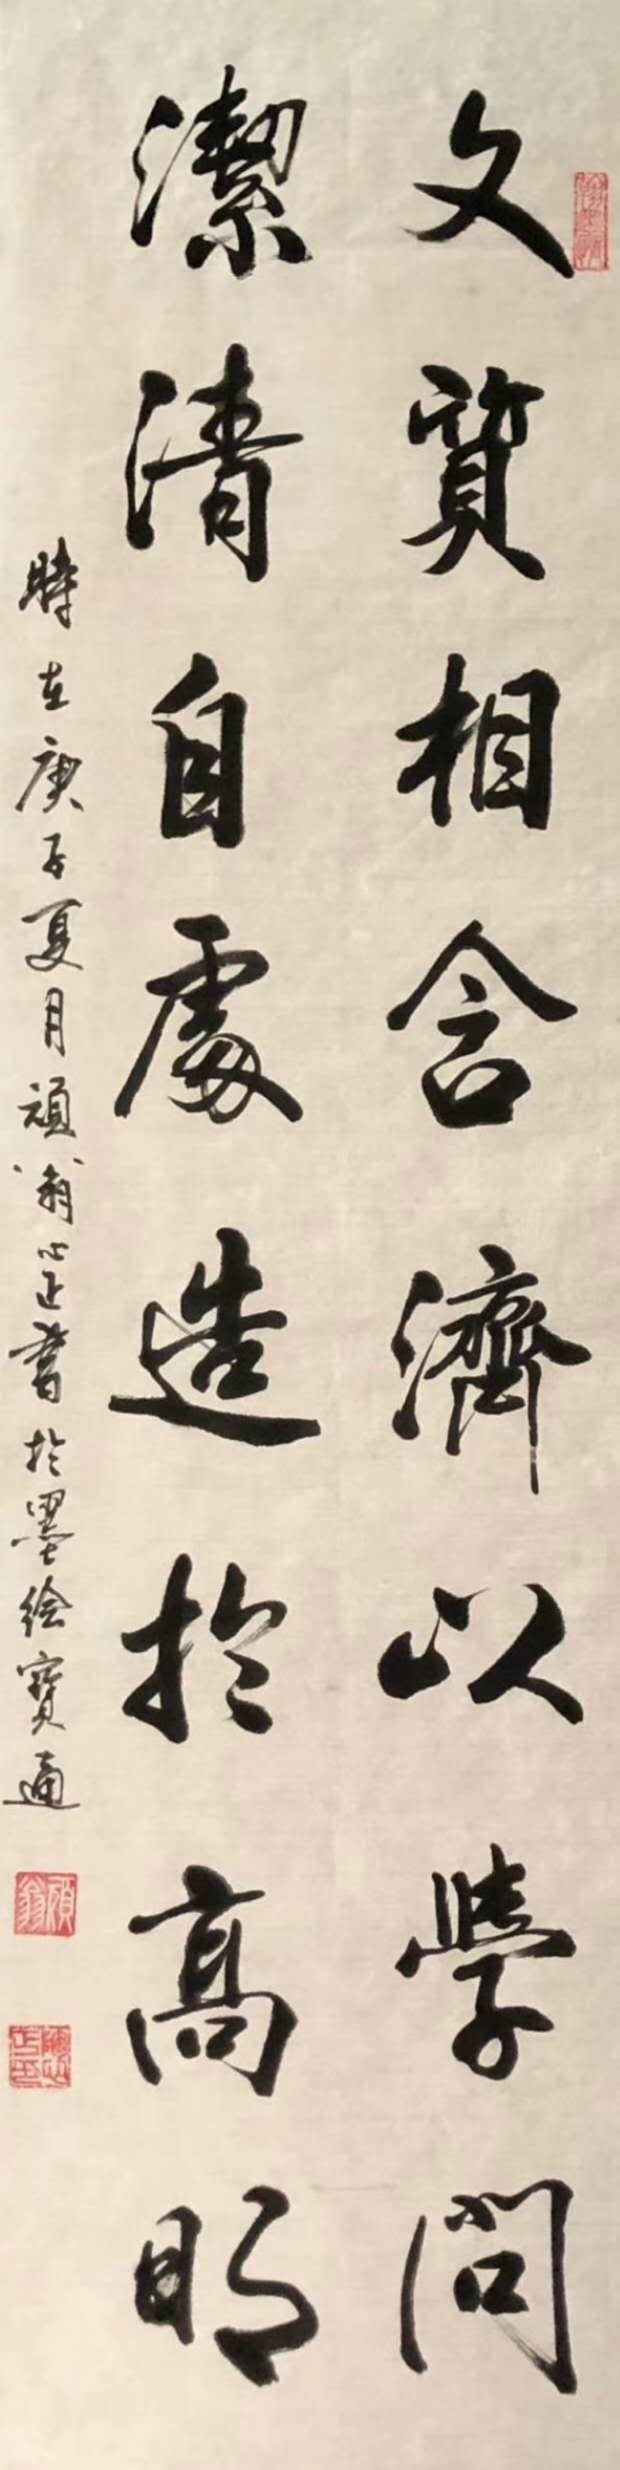 文質相含濟以學問
潔清自處造於高明
時在庚子夏月頑翁心正書於墨繪寶通
頑翁